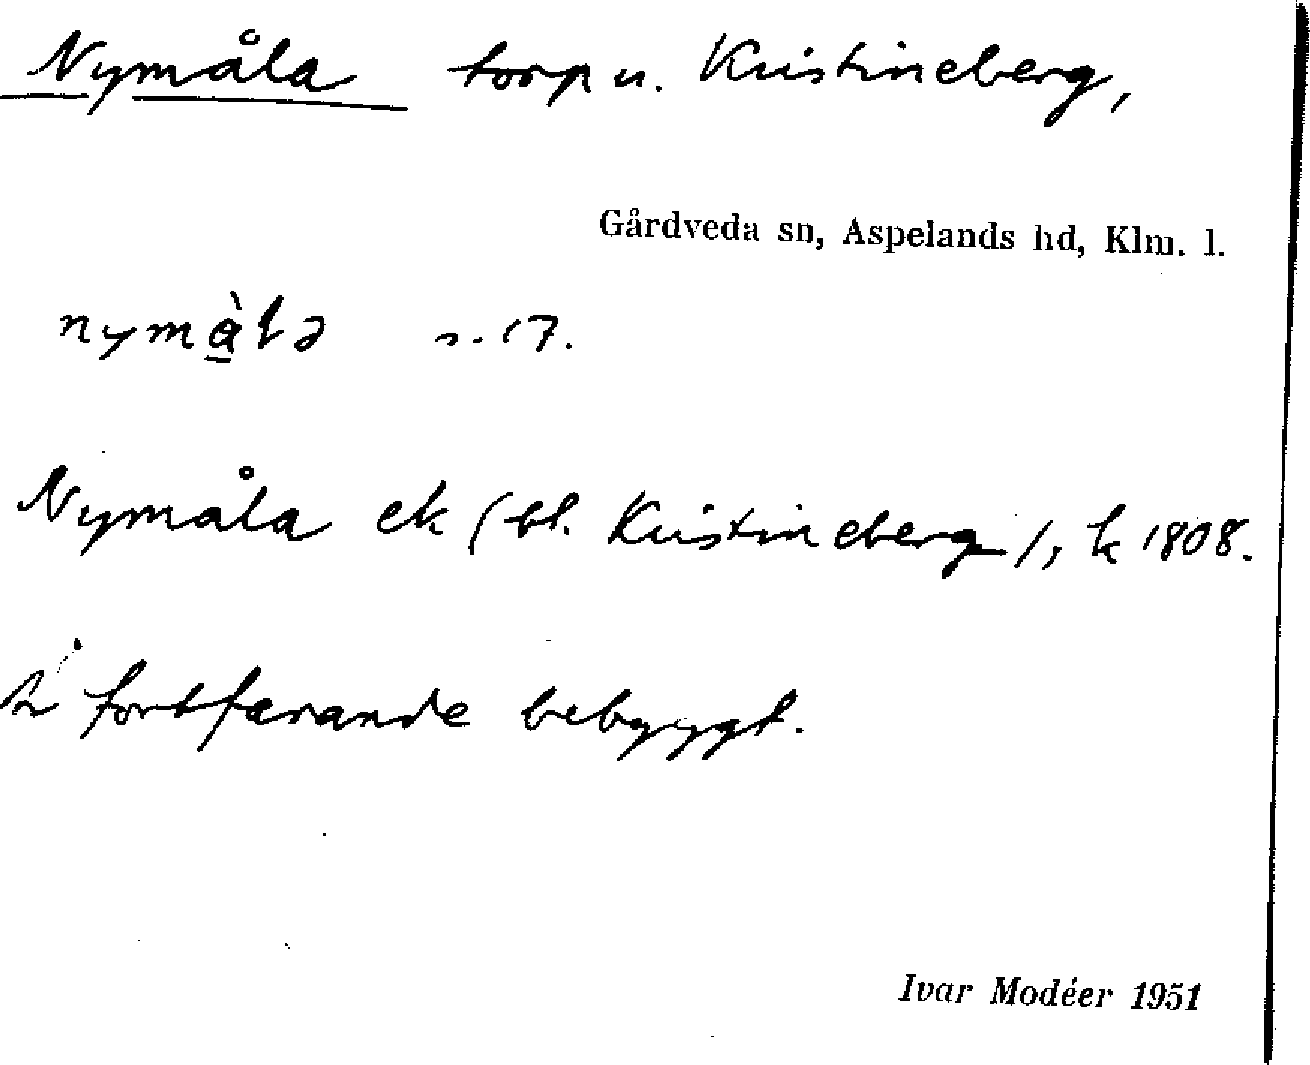 Nymåla torp u. Kristineberg,
Gårdveda sn, Aspelands hd, Klm. l.
nymàlə s. 17.
Nymåla ek (bl. Kristineberg), k 1808.
Är fortfarande bebyggt.
Ivar Modéer 1951